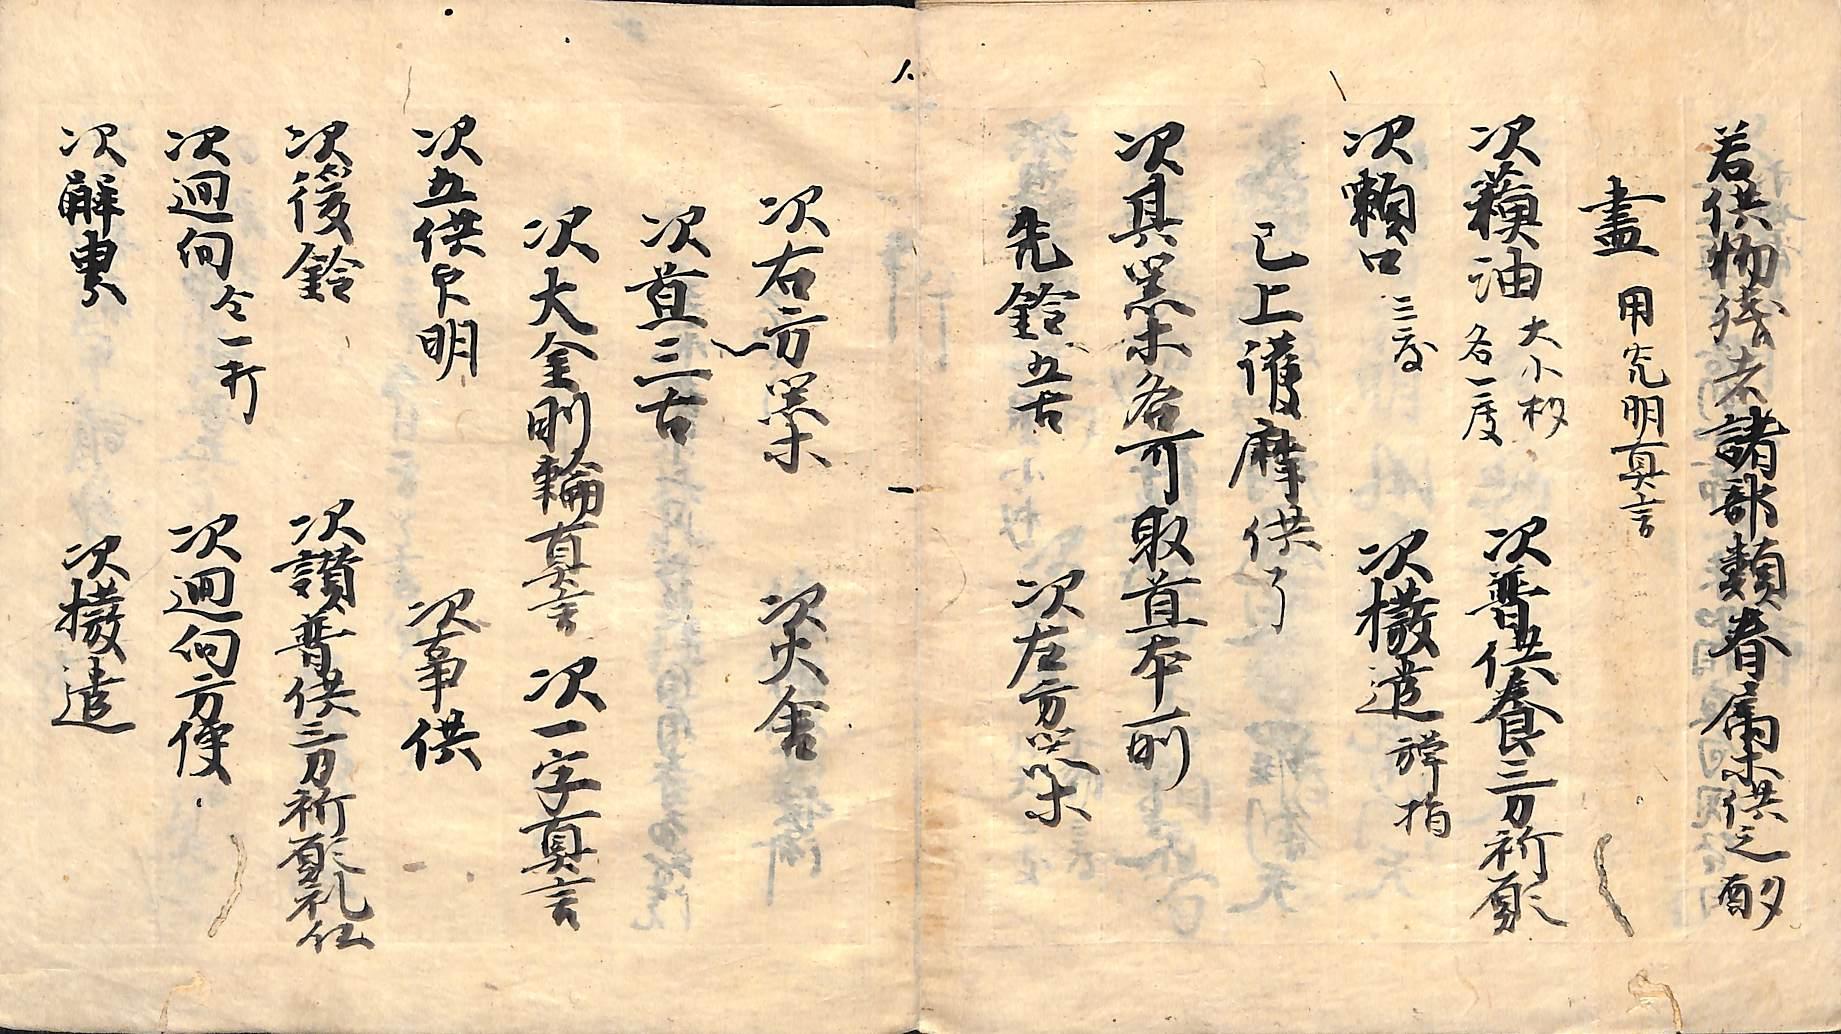 若供物残者諸部類眷属ホ供之酌
盡 用光明真言
次蘓油 大小杓各一度 次普供養三力祈願
次嗽口 三度 次撥遣 弾指
已上護摩供了
次具器ホ各可取置本所
先鈴五古 次左方器ホ
次右方器ホ 次火舎
次置三古
次大金剛輪真言 次一字真言
次五供印明 次事供
次後鈴 次讃普供三力祈願礼仏
次廻向 金一打 次廻向方便
次解界 次撥遣